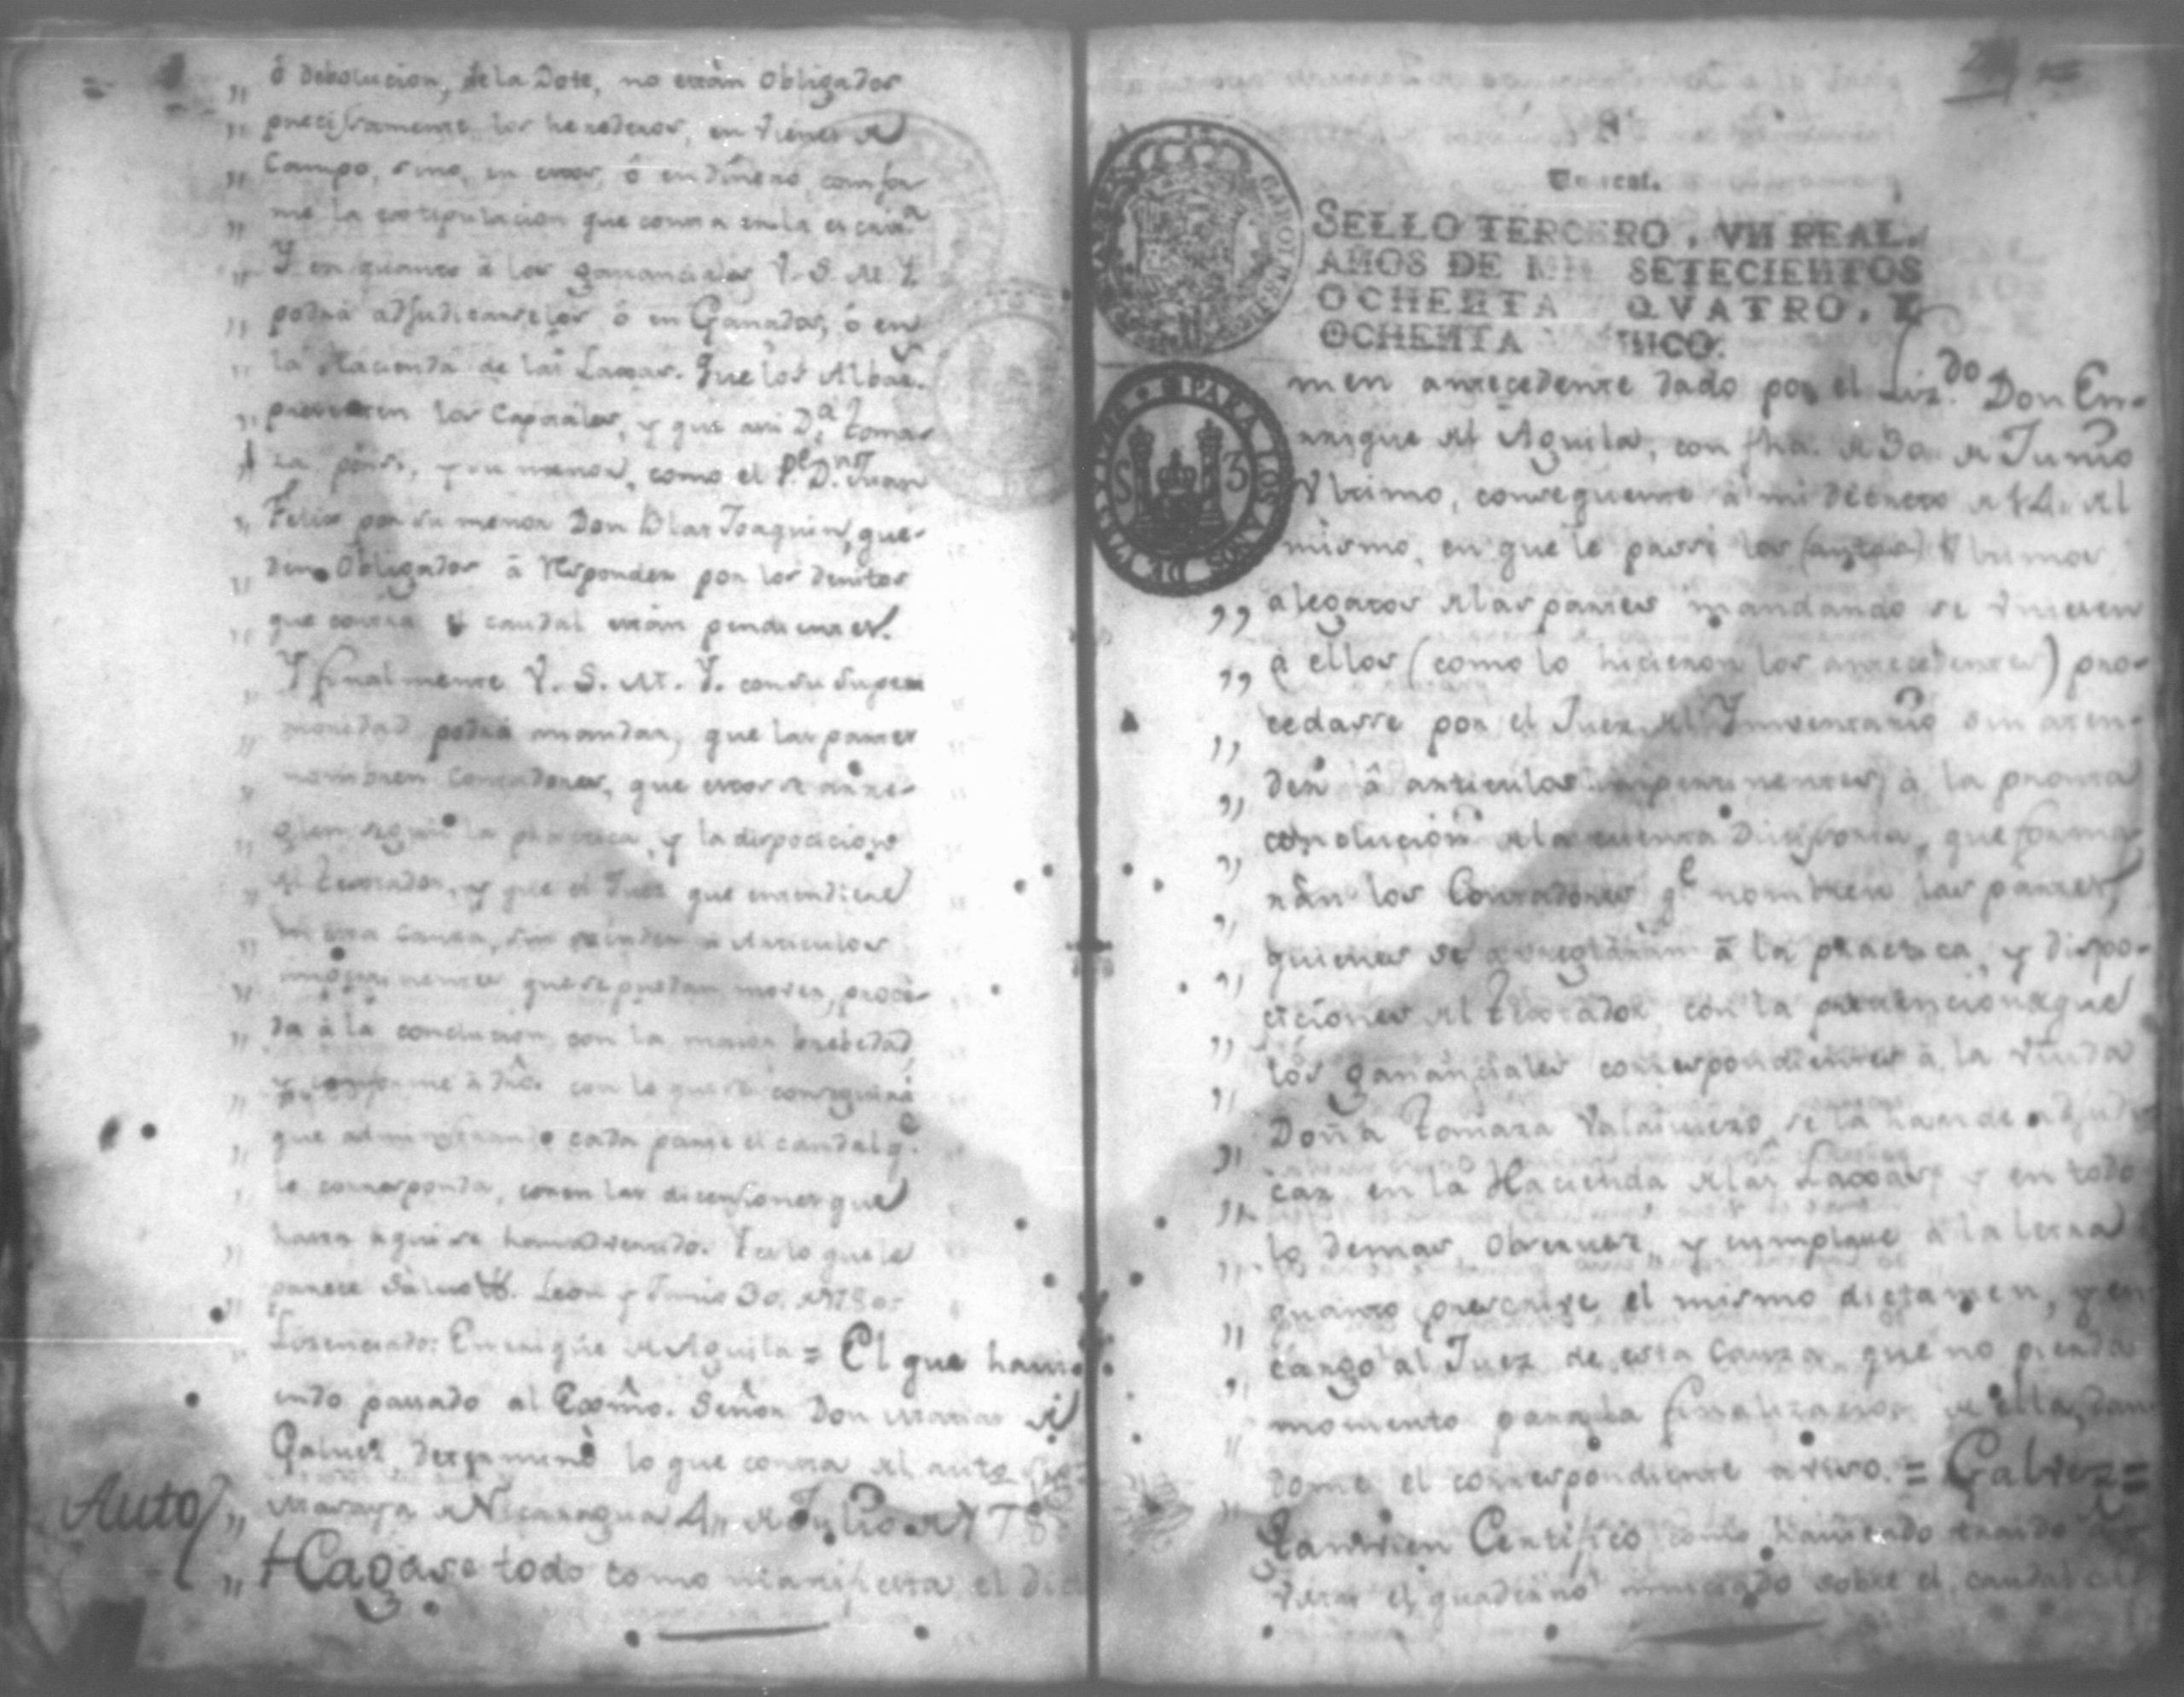 ó debolucion, de la Dote, no están obligados
precissamente los herederos, en vienes de
Campo, sino, en esos, ó en dinero, confor
me la estipulacion que consta en la escra.
Y en quanto á los gananciales V. S. M. I.
podrá adjudicarselos, ó en Ganados, ó en
la Hacienda de las Lajas. Que los Albac.
presenten los Caporales, y que assi Da. Tomas
sa por si, y su menor, como el Pe. Dn. Juan
Felix por su menor Don Blas Joaquin, que-
den Obligados á responder por los devitos
que contra el caudal están pendientes.
Y finalmente V. S. M. Y. con su Superi
oridad podrá mandar, que las partes
nombren Contadores, que estos se arre-
glen segun la practica, y la disposicion
del testador, y que el Juez que entendiere
en esta Causa, sin atender á Articulos
impertinentes que se puedan mover, proce-
da á la conclusion con la maior brebedad,
y conforme á dro. con lo que se conseguirá
que administrando cada parte el caudal qe.
le corresponda, cesen las dicensiones que
hasta aqui se han advertido. Es lo que le
parece Salvo &. Leon y Junio 30. de 178
Lizenciado: Enrrique del Aguila = El que havi-
endo passado al Exmo. Señor Don Matias de
Galvez, determinó lo que consta del auto
Auto Masaya de Nicaragua 4,, de Julio de 178
Hagase todo como manifiesta el dic
Un real.
SELLO TERCERO, VN REAL.
AÑOS DE MIL SETECIENTOS
OCHENTA QVATRO, Y
OCHENTA CINCO.
PARA LOS AÑOS DE
S 3
men antecedente dado por el Lizdo. Don En-
rrique del Aguila, con fha. de 30. de Junio
Vltimo, conseguente á mi decreto de 14. del
mismo, en que le passé los (autos) Vltimos
alegatos de las partes mandando se vniesen
á ellos (como lo hicieron los antecedentes) pro-
cedasse por el Juez del Ynventario sin aten-
der á articulos impertinentes, á la pronta
conclucion de la cuenta Divisoria, que forma-
rán los Contadores qe nombren las partes,
quienes se arreglarán á la practica, y dispo-
ciciones del testador, con la prevencion que
los gananciales correspondientes á la Viuda
Doña Tomasa se la han de adjudi
car en la Hacienda de las Lajas, y en todo
lo demas, observese, y cumplase á la letra
quanto prescrive el mismo dictamen, y en
cargo al Juez de esta Causa, que no pierda
momento para la finalizacion de ella, dan
dome el correspondiente aviso. = Galvez =
Tambien Certifico como haviendo traido á la
vista el quaderno sobre el caudal